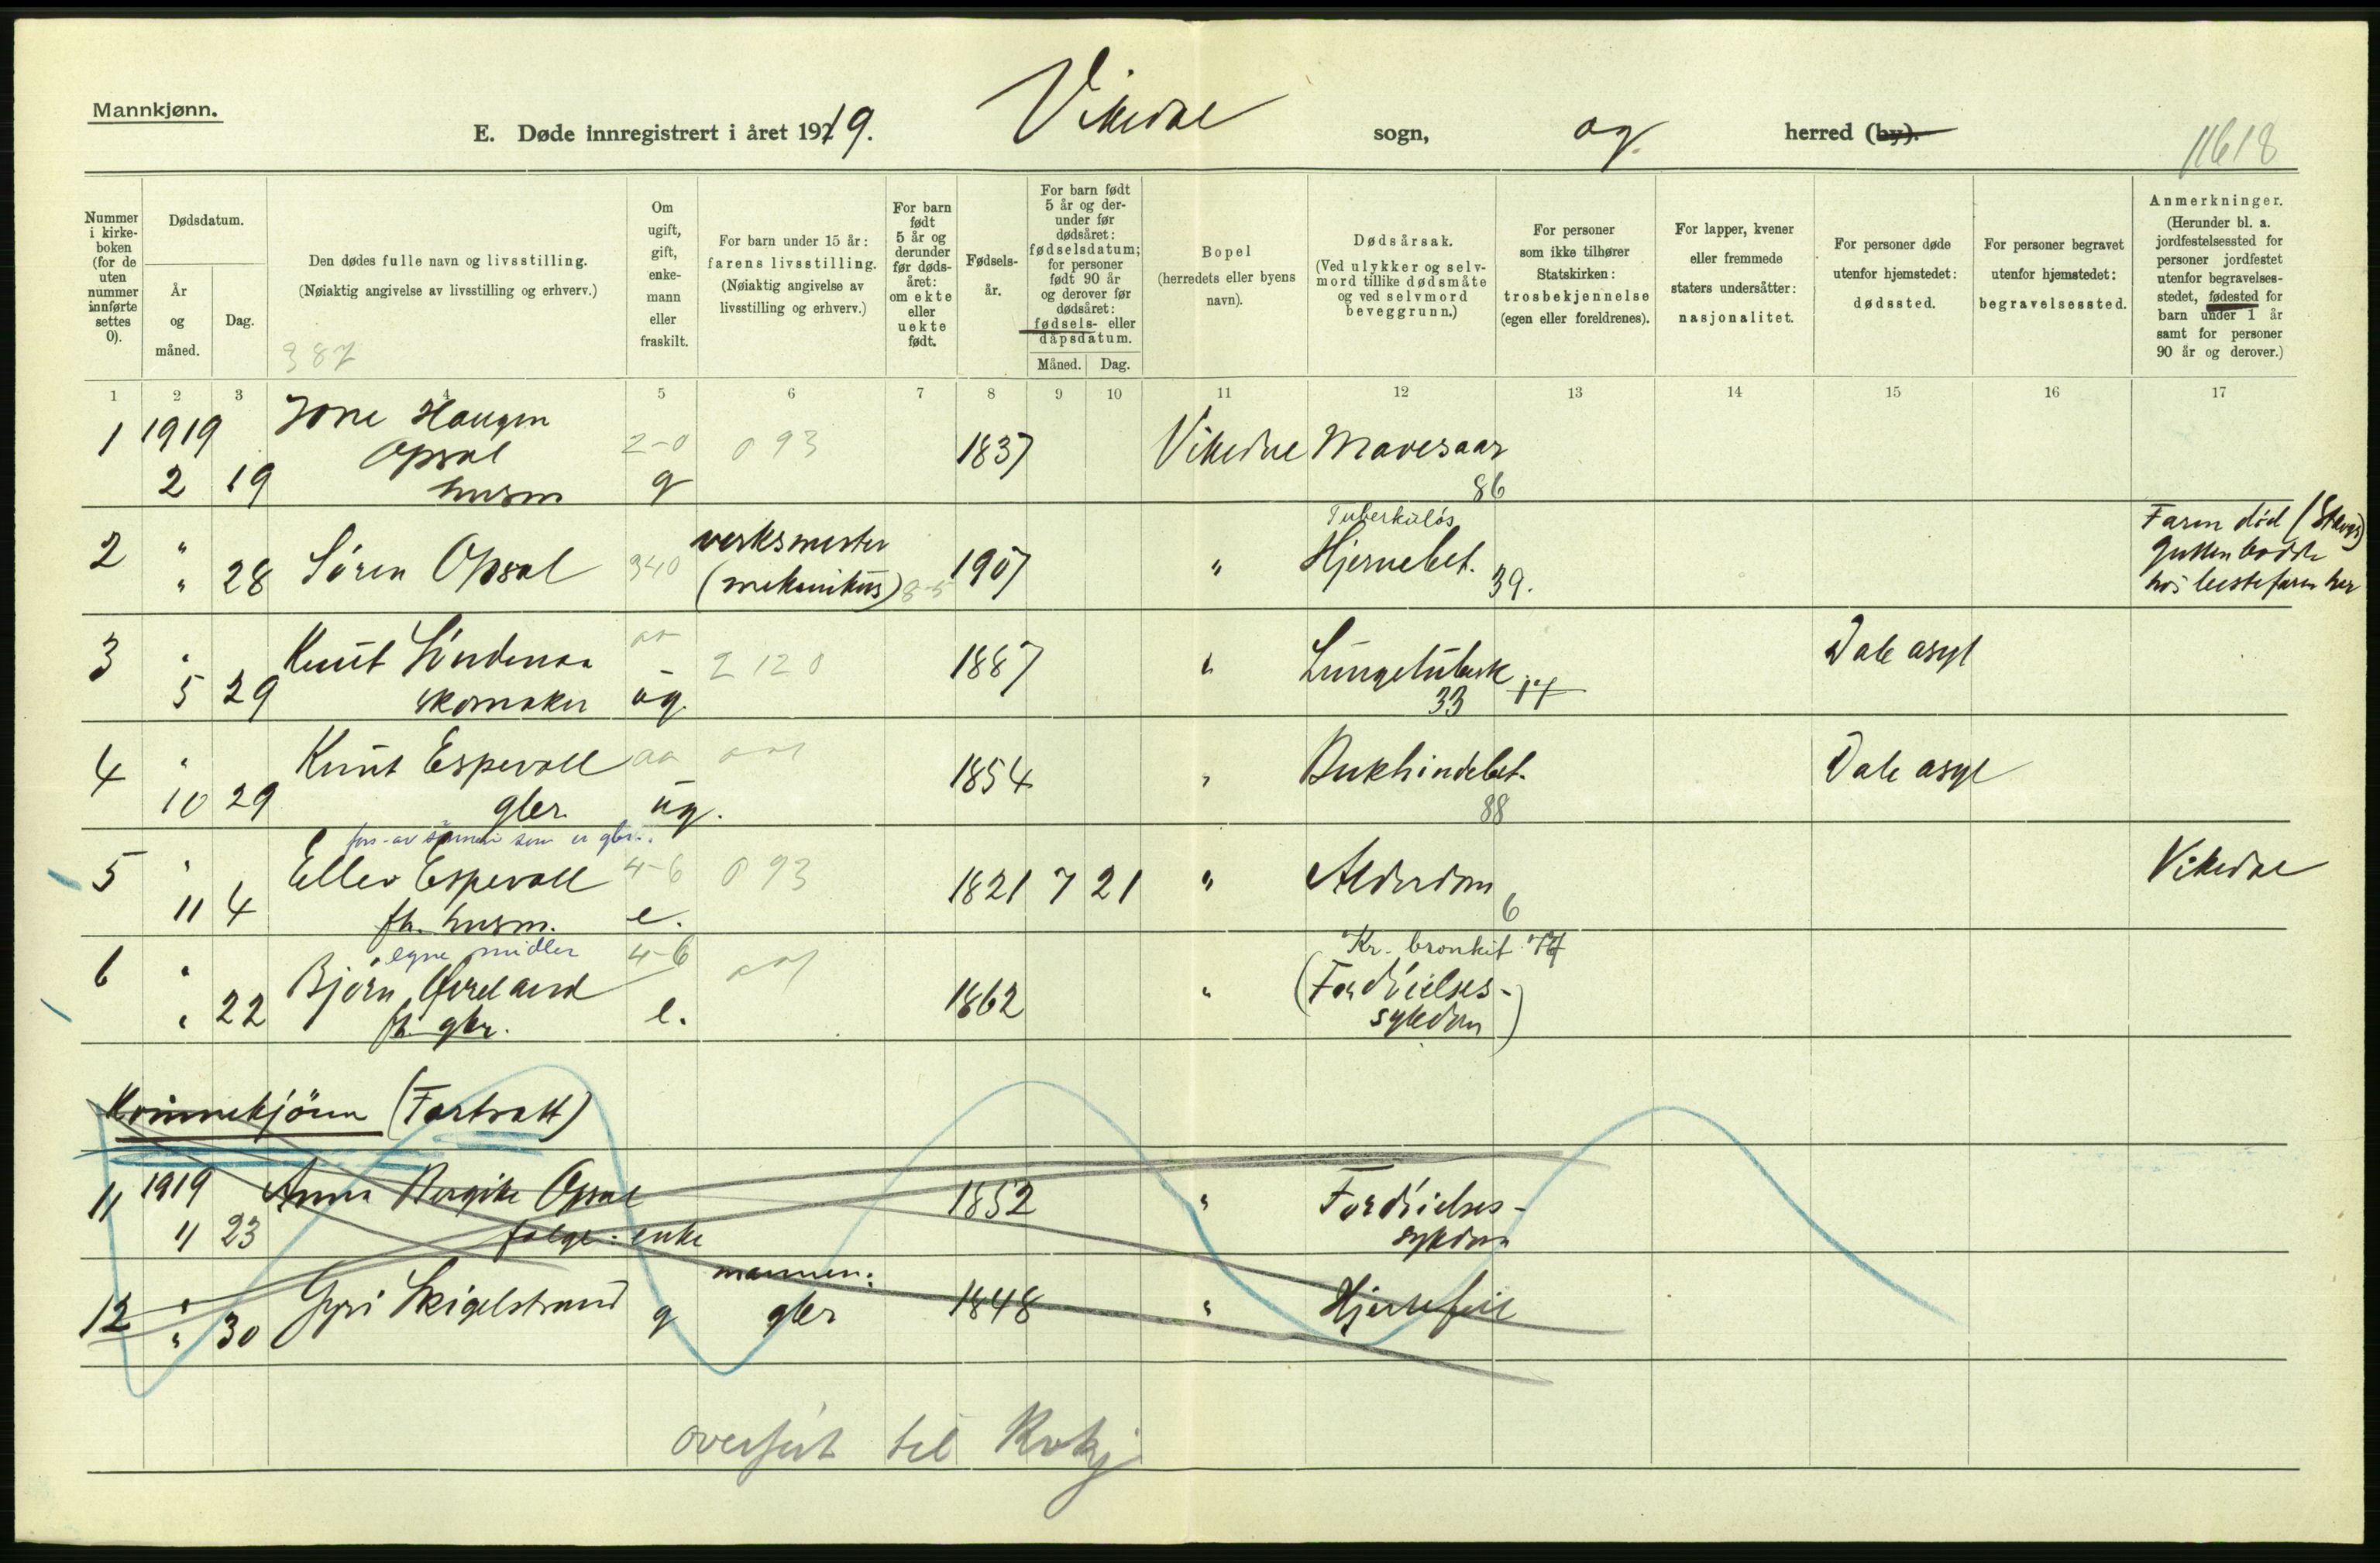 Mannkjønn.
E. Døde innregistrert i året 1919. Vikedal sogn, og herred (by).
11618
Nummer i kirke-boken (for de uten nummer innførte settes 0).
Dødsdatum.
År og måned.
Dag.
Den dødes fulle navn og livsstilling.
(Nøiaktig angivelse av livsstilling og erhverv.)
387
Om ugift, gift, enkemann eller fraskilt.
For barn under 15 år: farens livsstilling.
(Nøiaktig angivelse av livsstilling og erhverv.)
For barn født 5 år og derunder før dødsåret: om ekte eller uekte født.
Fødselsår.
For barn født 5 år og derunder før dødsåret: fødselsdatum; for personer født 90 år og derover før dødsåret: fødsels- eller dåpsdatum.
Måned. Dag.
Bopel
(herredets eller byens navn).
Dødsårsak.
(Ved ulykker og selvmord tillike dødsmåte og ved selvmord beveggrunn.)
For personer som ikke tilhører Statskirken: trosbekjennelse (egen eller foreldrenes).
For lapper, kvener eller fremmede staters undersåtter: nasjonalitet.
For personer døde utenfor hjemstedet: dødssted.
For personer begravet utenfor hjemstedet: begravelsessted.
Anmerkninger.
(Herunder bl. a. jordfestelsessted for personer jordfestet utenfor begravelsesstedet, fødested for barn under 1 år samt for personer 90 år og derover.)
1 2 3 4 5 6 7 8 9 10 11 12 13 14 15 16 17
1 1919 Jone Haugen 2-0 093 1837 Vikedal Mavesaar
Opsal
2 19 husm g 86
2 " verksmester Tuberkuløs Faren død (Stavgr)
" 28 Søren Opsal 340 (mekanikus) 8-5 1907 " Hjernebet. 39. Gutten bodde
hos bestefaren her
3 " Knut Søndenaa - 2120 1887 " Lungetuberk. 17 Dale asyl
5 29 skomaker ug. 33
4 " Knut Espevoll aa 1854 " Bukhindebet. Dale asyl
10 29 gbr. ug. 88
fors. av sønnen som er gbr.
5 " Ellev Espevoll 4-6 093 1821 7 21 " Alderdom 6 Vikedal
11 4 fh. husm. e.
egne midler 4-6 Kr. bronkit
6 " Bjørn Øvreland 1862 " (Fordøielses-
" 22 fh. gbr. e. sykdom)
Kvinnekjönn (Fortsatt)
11 1919 Anna Bergitte Opsal 1852 " Fordøielses-
11 23 følge: enke sykdom
12 " Gyri Skigelstrand mannen: 1848 " Hjertefeil
" 30 g gbr
overført til Kvkj